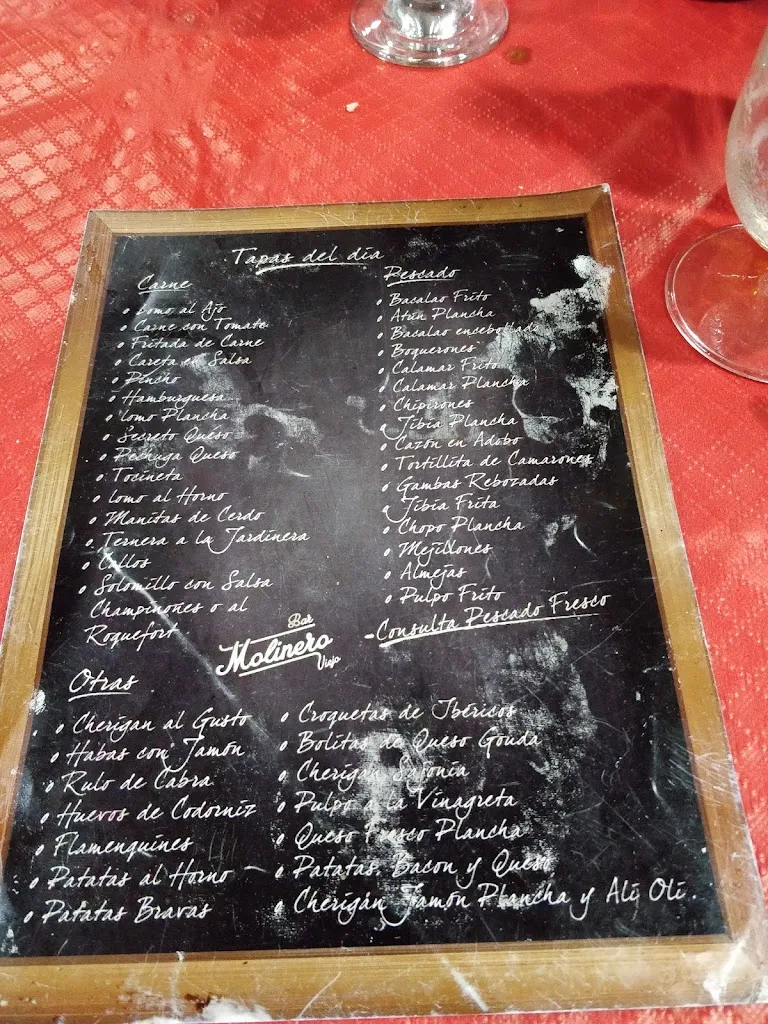 Tapas del día
Carne
Lomo al Ajo
Carne con Tomate
Fritada de Carne
Careta en Salsa
Pincho
Hamburguesa
Lomo Plancha
Secreto Queso
Pechuga Queso
Tocineta
Lomo al Horno
Manitas de Cerdo
Ternera a la Jardinera
Callos
Solomillo con Salsa
Champiñones o al
Roquefort
Pescado
Bacalao Frito
Atún Plancha
Bacalao encebollado
Boquerones
Calamar Frito
Calamar Plancha
Chipirones
Jibia Plancha
Cazón en Adobo
Tortillita de Camarones
Gambas Rebozadas
Jibia Frita
Chopo Plancha
Mejillones
Almejas
Pulpo Frito
-Consulta Pescado Fresco
Bar
Molinero
Viejo
Otras
Cherigan al Gusto
Habas con Jamón
Rulo de Cabra
Huevos de Codorniz
Flamenquines
Patatas al Horno
Patatas Bravas
Croquetas de Ibéricos
Bolitas de Queso Gouda
Cherigán Sajonia
Pulpo a la Vinagreta
Queso Fresco Plancha
Patatas, Bacon y Queso
Cherigán Jamón Plancha y Ali Oli.